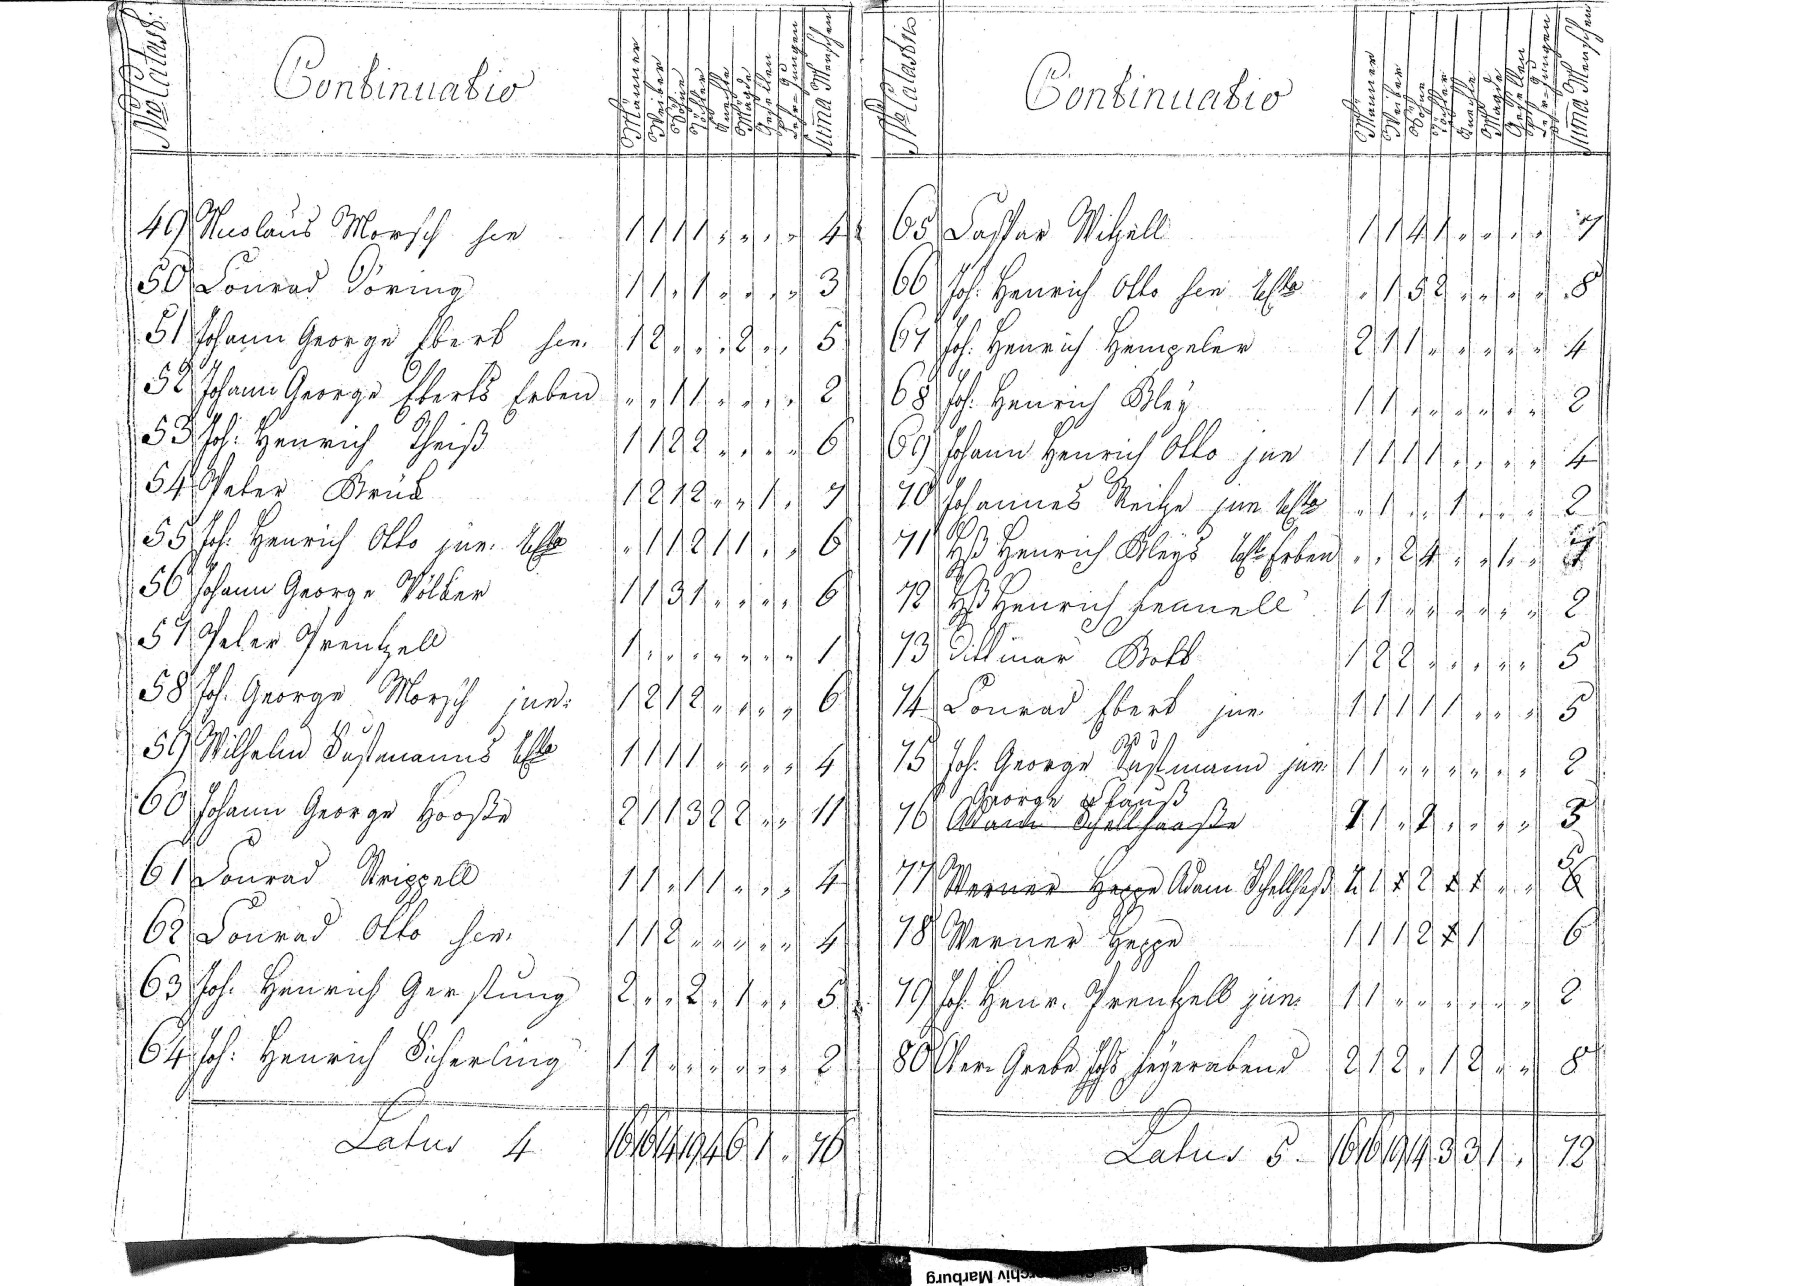 No Catast:
Continuatio
Männer
Weiber
Söhne
Töchter
Knechte
Mägde
Gesellen
Lehr-Jungen
Suma Menschen
49 Nicolaus Morsch sen 1 1 1 1 " " " " 4
50 Conrad Döring 1 1 " 1 " " " " 3
51 Johann George Ebert sen. 1 2 " " " 2 " " 5
52 Johann George Eberts Erben " " 1 1 " " " " 2
53 Joh: Henrich Theiß 1 1 2 2 " " " " 6
54 Peter Brück 1 2 1 2 " " 1 " 7
55 Joh: Henrich Otto jun. " 1 1 2 1 1 " " 6
56 Johann George Völker 1 1 3 1 " " " " 6
57 Peter Prentzell 1 " " " " " " " 1
58 Joh: George Morsch jun: 1 2 1 2 " " " " 6
59 Wilhelm Sustmanns 1 1 1 1 " " " " 4
60 Johann George Hooße 2 1 1 3 2 2 " " 11
61 Conrad Strippell 1 1 " 1 1 " " " 4
62 Conrad Otto sen. 1 1 2 " " " " " 4
63 Joh. Henrich Gerstung 2 " " 2 " 1 " " 5
64 Joh: Henrich Sicherling 1 1 " " " " " " 2
Latus 4 16 16 14 19 4 6 1 " 76
No Catastri
Continuatio
Männer
Weiber
Söhne
Töchter
Knechte
Mägde
Gesellen
Lehr-Jungen
Suma Menschen
65 Caspar Witzell 1 1 4 1 " " " " 7
66 Joh: Henrich Otto sen " 1 5 2 " " " " 8
67 Joh: Henrich Hempeler 2 1 1 " " " " " 4
68 Joh: Henrich Bley 1 1 " " " " " " 2
69 Johann Henrich Otto jun 1 1 1 1 " " " " 4
70 Johannes Reitze jun " 1 " " 1 " " " 2
71 Henrich Bleys Erben " " 2 4 " " 1 " 7
72 Henrich Fennell 1 1 " " " " " " 2
73 Dittmar Bott 1 2 2 " " " " " 5
74 Conrad Ebert jun 1 1 1 1 1 " " " 5
75 Joh: George Sustmann jun: 1 1 " " " " " " 2
George Strauß
76 Adam Schellhaaße 1 " " " " " 3
77 Werner Heppe Adam Schellhaß 1 2 " " 5
78 Werner Heppe 1 1 1 2 1 6
79 Joh: Henr. Prentzell jun: 1 1 " " " " " " 2
80 Grebe Johs Feyerabend 2 1 2 " 1 2 " " 8
Latus 5. 16 16 19 14 3 3 1 " 72